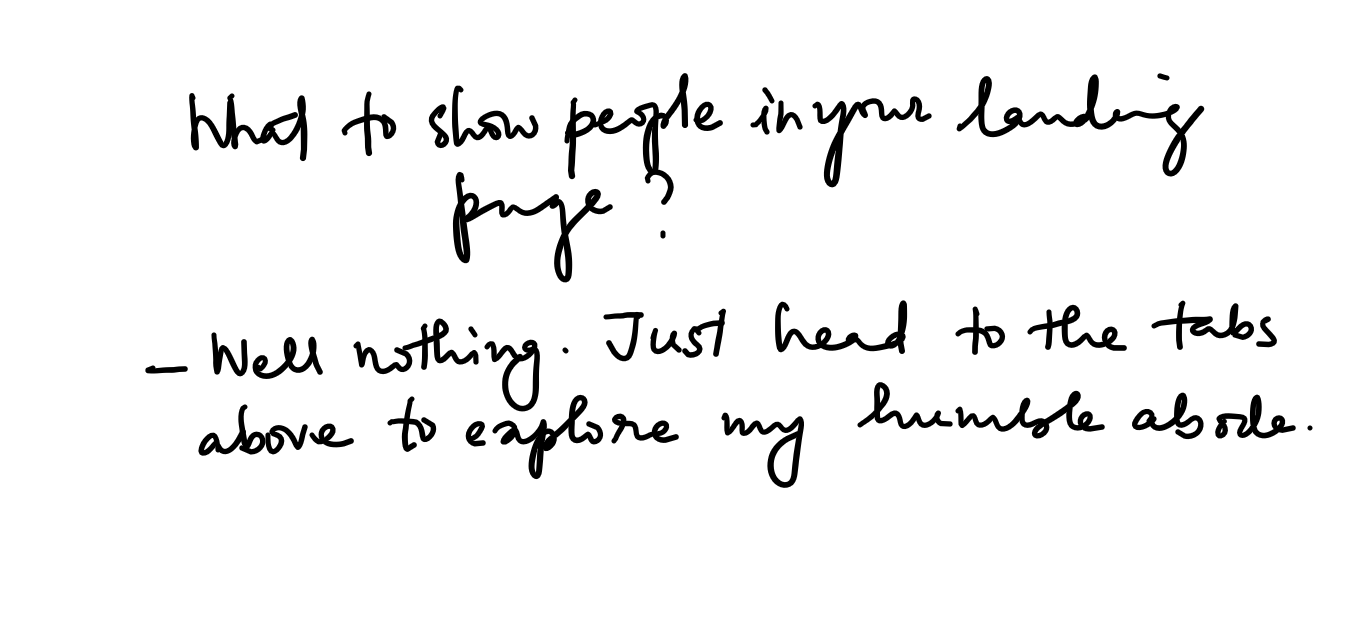 What to show people in your landing
page?
- Well nothing. Just head to the tabs
above to explore my humble abode.